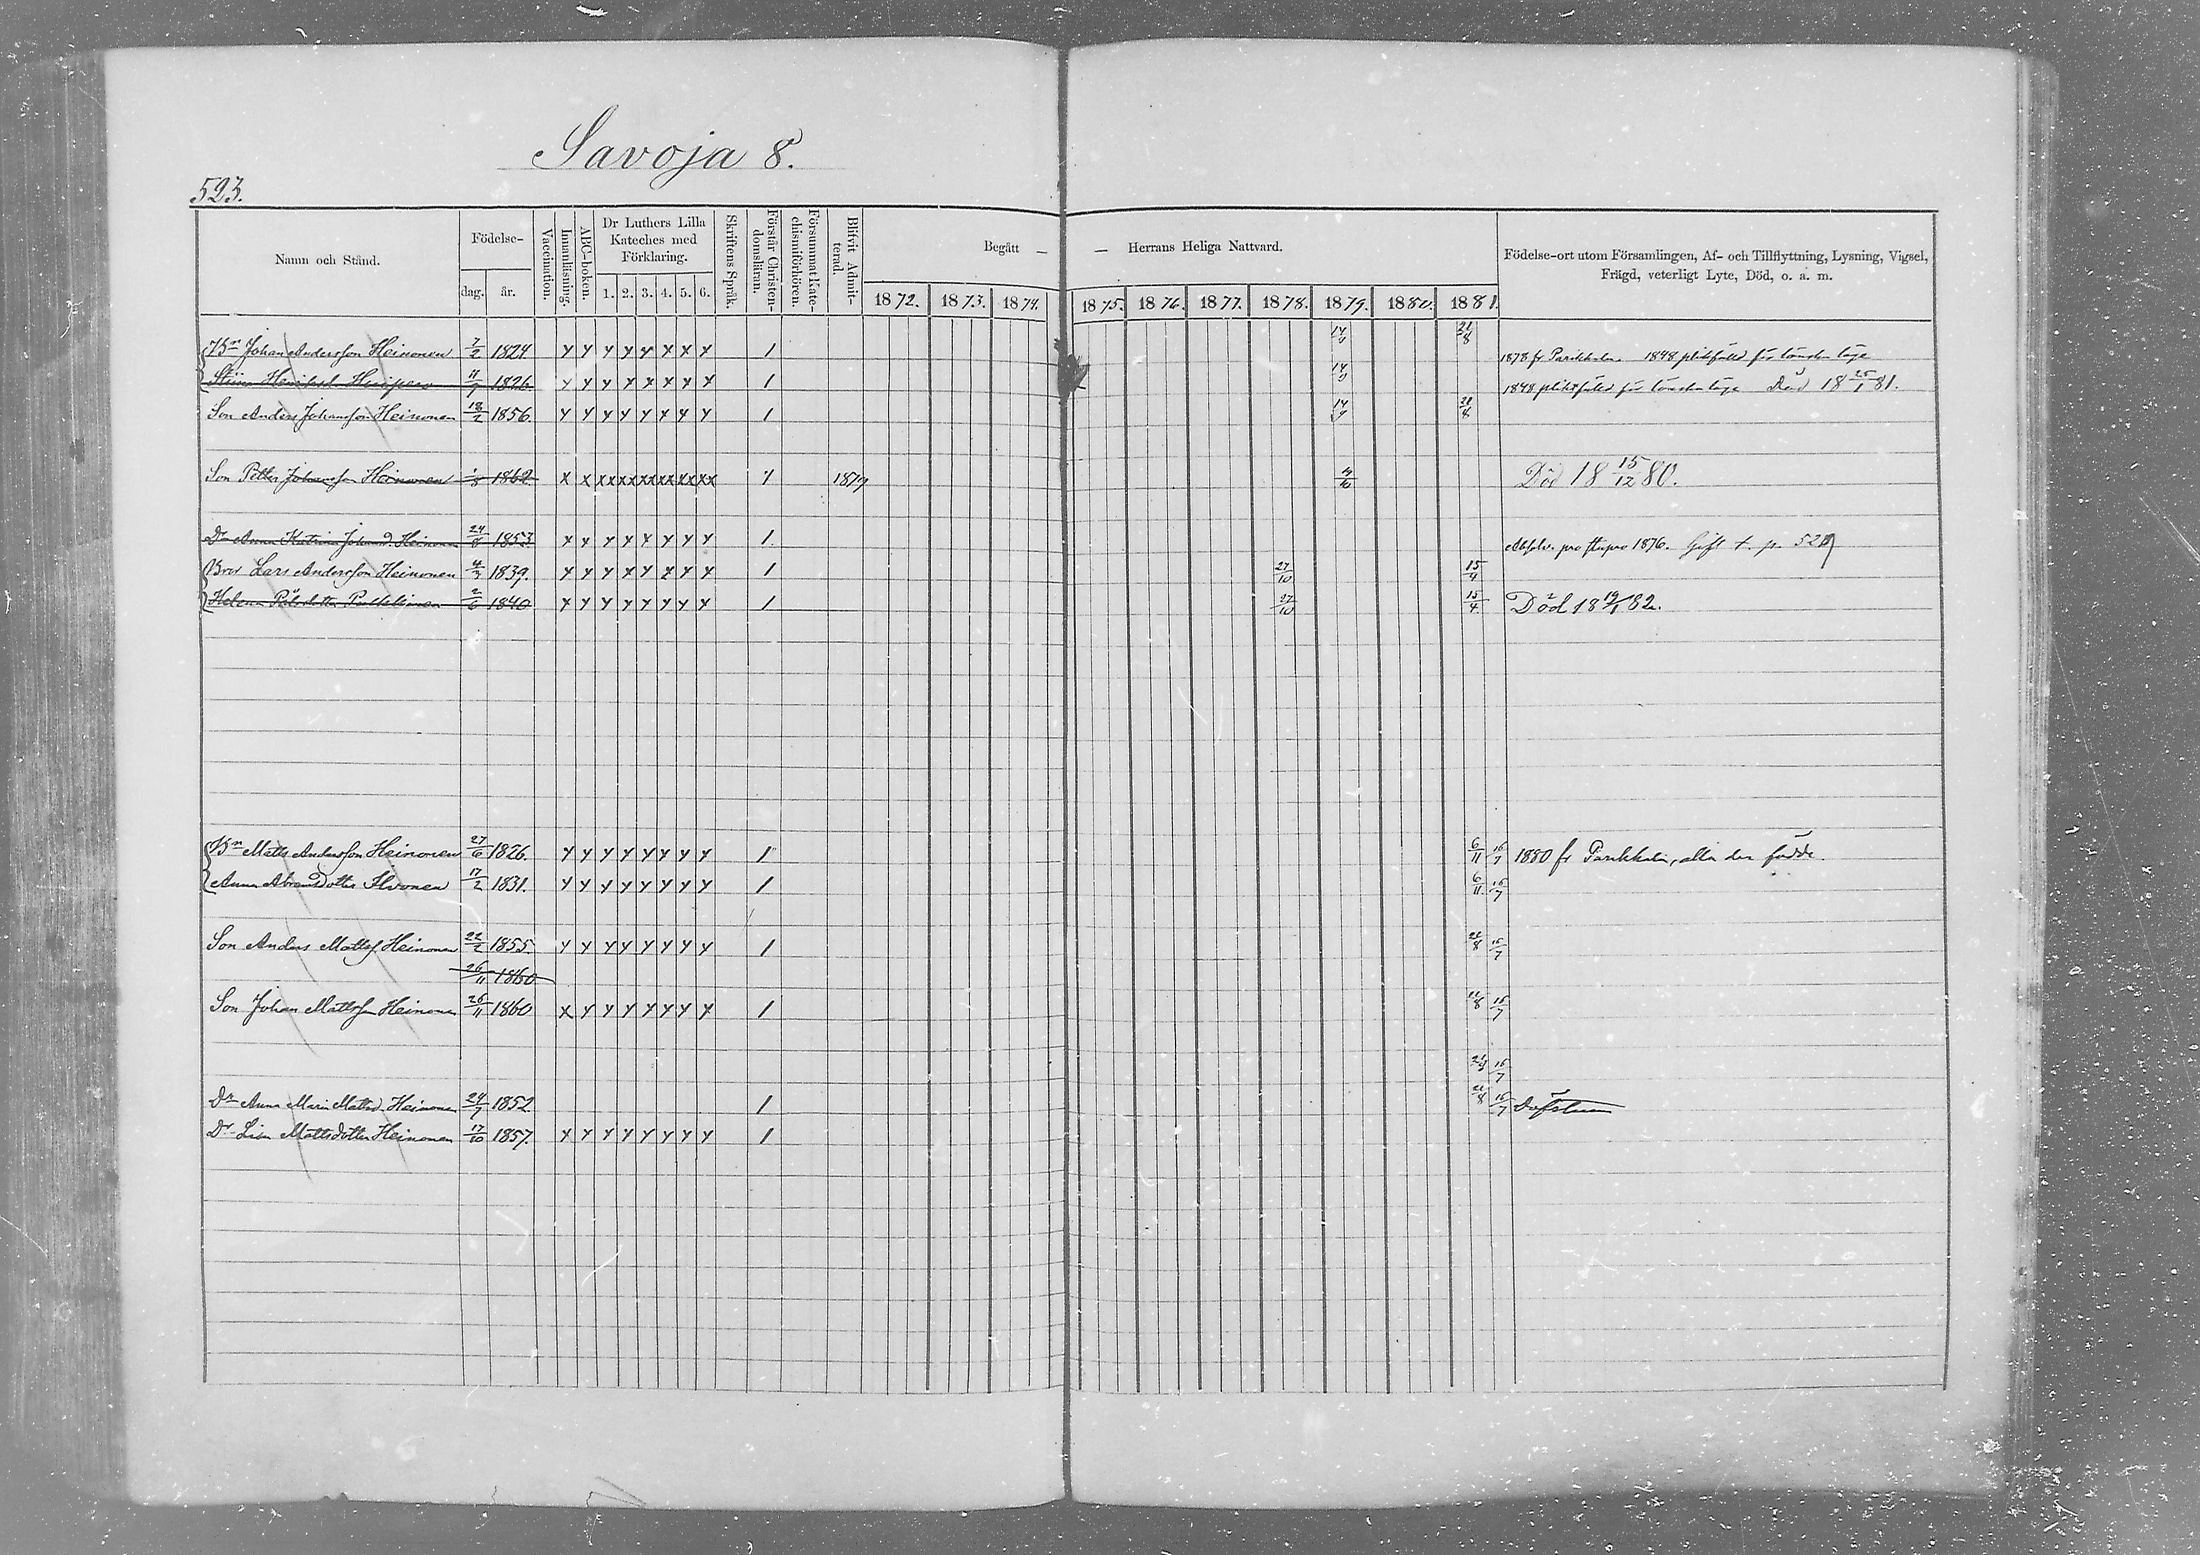 Savoja 8.
523.
Namn och Stånd.
Födelse-
dag.
år.
Vaccination.
Innanläsning.
ABC-boken.
Dr Luthers Lilla
Kateches med
Förklaring.
1. 2. 3. 4. 5. 6.
Skriftens Språk.
Förstår Christen-
domsläran.
Försummat Kate-
chismiförhören.
Blifvit Admit-
terad.
Begått —
— Herrans Heliga Nattvard.
1872. 1873. 1874. 1875. 1876. 1877. 1878. 1879. 1880. 1881.
Födelse-ort utom Församlingen, Af- och Tillflyttning, Lysning, Vigsel,
Frägd, veterligt Lyte, Död, o. a. m.
Bn Johan Andersson Heinonen 1824 x x x x x x x x / 21/8 1878 fr Parikkala. 1848 pliktfälld för lönska läge
1826. x x x x x x x x / 1848 pliktfälld för lönska läge Död 18 25/1 81.
Son Anders Johansson Heinonen 18/2 1856. x x x x x x x x /
Son Petter Johansson Heinonen 1862 x x xx xx xx xx xx xx / 1879 Död 18 15/12 80.
Dr Anna Katrina Johansd. Heinonen 1853 x x x x x x x x / Absolv. pro stupro 1876. Gift t. p.
Bror Lars Andersson Heinonen 1839. x x x x x x x x / 27/10 15/4
Helena 2/6 1840 x x x x x x x x / 27/10 15/4 Död 18 82.
Bn Matts Andersson Heinonen 27/6 1826. x x x x x x x x / 6/11 16/7 1880 fr Parikkala, alla der födde.
Anna Abramsdotter Ilvonen 17/2 1831. x x x x x x x x / 6/11 16/7
Son Anders Mattss Heinonen 22/2 1855. x x x x x x x x / 21/8 16/7
26/11 1860
Son Johan Mattsson Heinonen 26/11 1860 x x x x x x x x / 21/8 16/7
16/7
Dr Anna Maria Mattsd. Heinonen 24/7 1852 / 21/8 16/7 Döfstum
Dr Lisa Mattsdotter Heinonen 17/10 1857. x x x x x x x x /